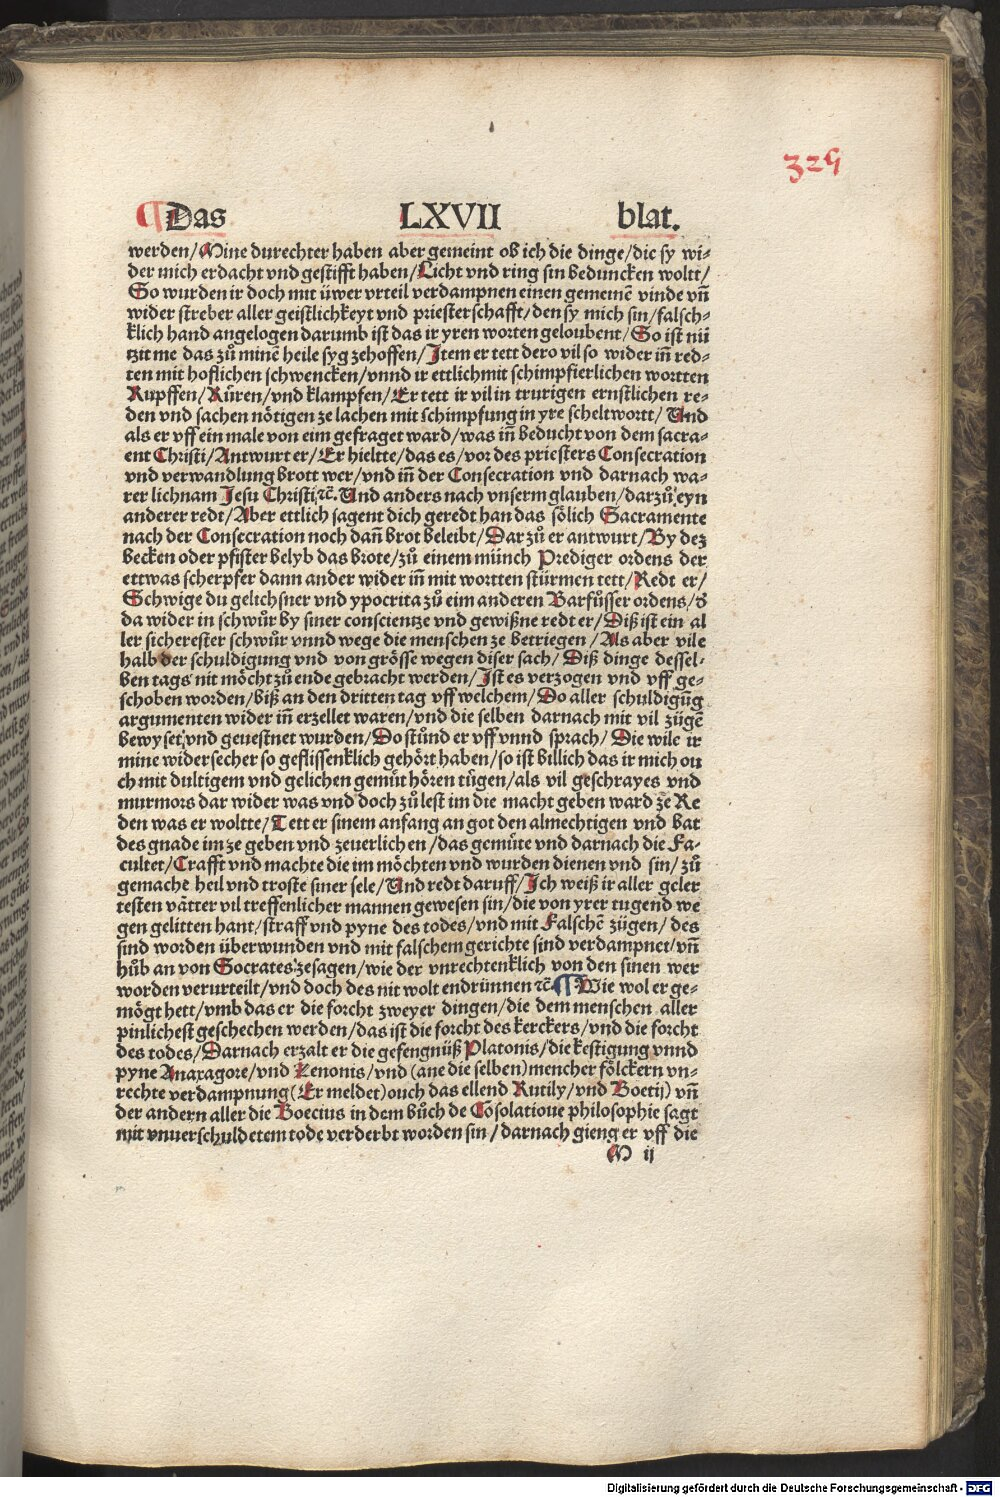 329
¶Das LXVII blat.
werden/Mine durechter haben aber gemeint ob ich die dinge/die sy wi-
der mich erdacht vnd gestifft haben/Licht vnd ring sin beduncken woltt/
So wurden ir doch mit üwer vrteil verdampnen einen gemeinē vinde vn̄
wider streber aller geistlichkeyt vnd priesterschafft/den sy mich sin/falsch-
klich hand angelogen darumb ist das ir yren worten geloubent/So ist nü
tzit me das zů minē heile syg zehoffen/Item er tett dero vil so wider in̄ red-
ten mit hoflichen schwencken/vnnd ir ettlichmit schimpfierlichen wortten
Rupffen/Rüren/vnd klampfen/Er tett ir vil in trurigen ernstlichen re-
den vnd sachen nötigen ze lachen mit schimpfung in yre scheltwortt/Und
als er vff ein male von eim gefraget ward/was in̄ beducht von dem sacra-
ent Christi/Antwurt er/Er hieltte/das es/vor des priesters Consecration
vnd verwandlung brott wer/vnd in̄ der Consecration vnd darnach wa-
rer lichnam Jesu Christi ꝛc̄. Und anders nach vnserm glauben/darzů eyn
anderer redt/Aber ettlich sagent dich geredt han das sölich Sacramente
nach der Consecration noch dan̄ brot beleibt/Dar zů er antwurt/By dez
becken oder pfister belyb das brote/zů einem münch Prediger ordens der
ettwas scherpfer dann ander wider in̄ mit wortten stürmen tett/Redt er/
Schwige du gelichsner vnd ypocrita zů eim anderen Barfůsser ordens/d̓
da wider in schwůr by siner conscientze vnd gewißne redt er/Diß ist ein al
ler sicherester schwůr vnnd wege die menschen ze betriegen/Als aber vile
halb der schuldigung vnd von grösse wegen diser sach/Diß dinge dessel-
ben tags nit möcht zů ende gebracht werden/Ist es verzogen vnd vff ge-
schoben worden/biß an den dritten tag vff welchem/Do aller schuldigūg
argumenten wider in̄ erzellet waren/vnd die selben darnach mit vil zügē
bewyset vnd geuestnet wurden/Do stůnd er vff vnnd sprach/Die wile ir
mine widersecher so geflissenklich gehört haben/so ist billich das ir mich ou
ch mit dultigem vnd gelichen gemüt hören tügen/als vil geschrayes vnd
murmors dar wider was vnd doch zů lest im die macht geben ward ze Re
den was er woltte/Tett er sinem anfang an got den almechtigen vnd bat
des gnade im ze geben vnd zeuerlichen/das gemüte vnd darnach die Fa-
cultet/Crafft vnd machte die im möchten vnd wurden dienen vnd sin/zů
gemache heil vnd troste siner sele/Und redt daruff/Ich weiß ir aller geler
testen vätter vil treffenlicher mannen gewesen sin/die von yrer tugend we
gen gelitten hant/straff vnd pyne des todes/vnd mit Falschē zügen/des
sind worden überwunden vnd mit falschem gerichte sind verdampnet/vn̄
hůb an von Socrates zesagen/wie der vnrechtenklich von den sinen wer
worden verurteilt/vnd doch des nit wolt endrünnen ꝛc̄. ¶Wie wol er ge-
mögt hett/vmb das er die forcht zweyer dingen/die dem menschen aller
pinlichest geschechen werden/das ist die forcht des kerckers/vnd die forcht
des todes/Darnach erzalt er die gefengnüß Platonis/die kestigung vnnd
pyne Anaxagore/vnd Zenonis/vnd (ane die selben) mencher fölckern vn-
rechte verdampnung (Er meldet) ouch das ellend Rutily/vnd Boetij) vn̄
der andern aller die Boecius in dem bůch de Cōsolatioue philosophie sagt
mit vnuerschuldetem tode verderbt worden sin/darnach gieng er vff die
M ij
Digitalisierung gefördert durch die Deutsche Forschungsgemeinschaft - DFG